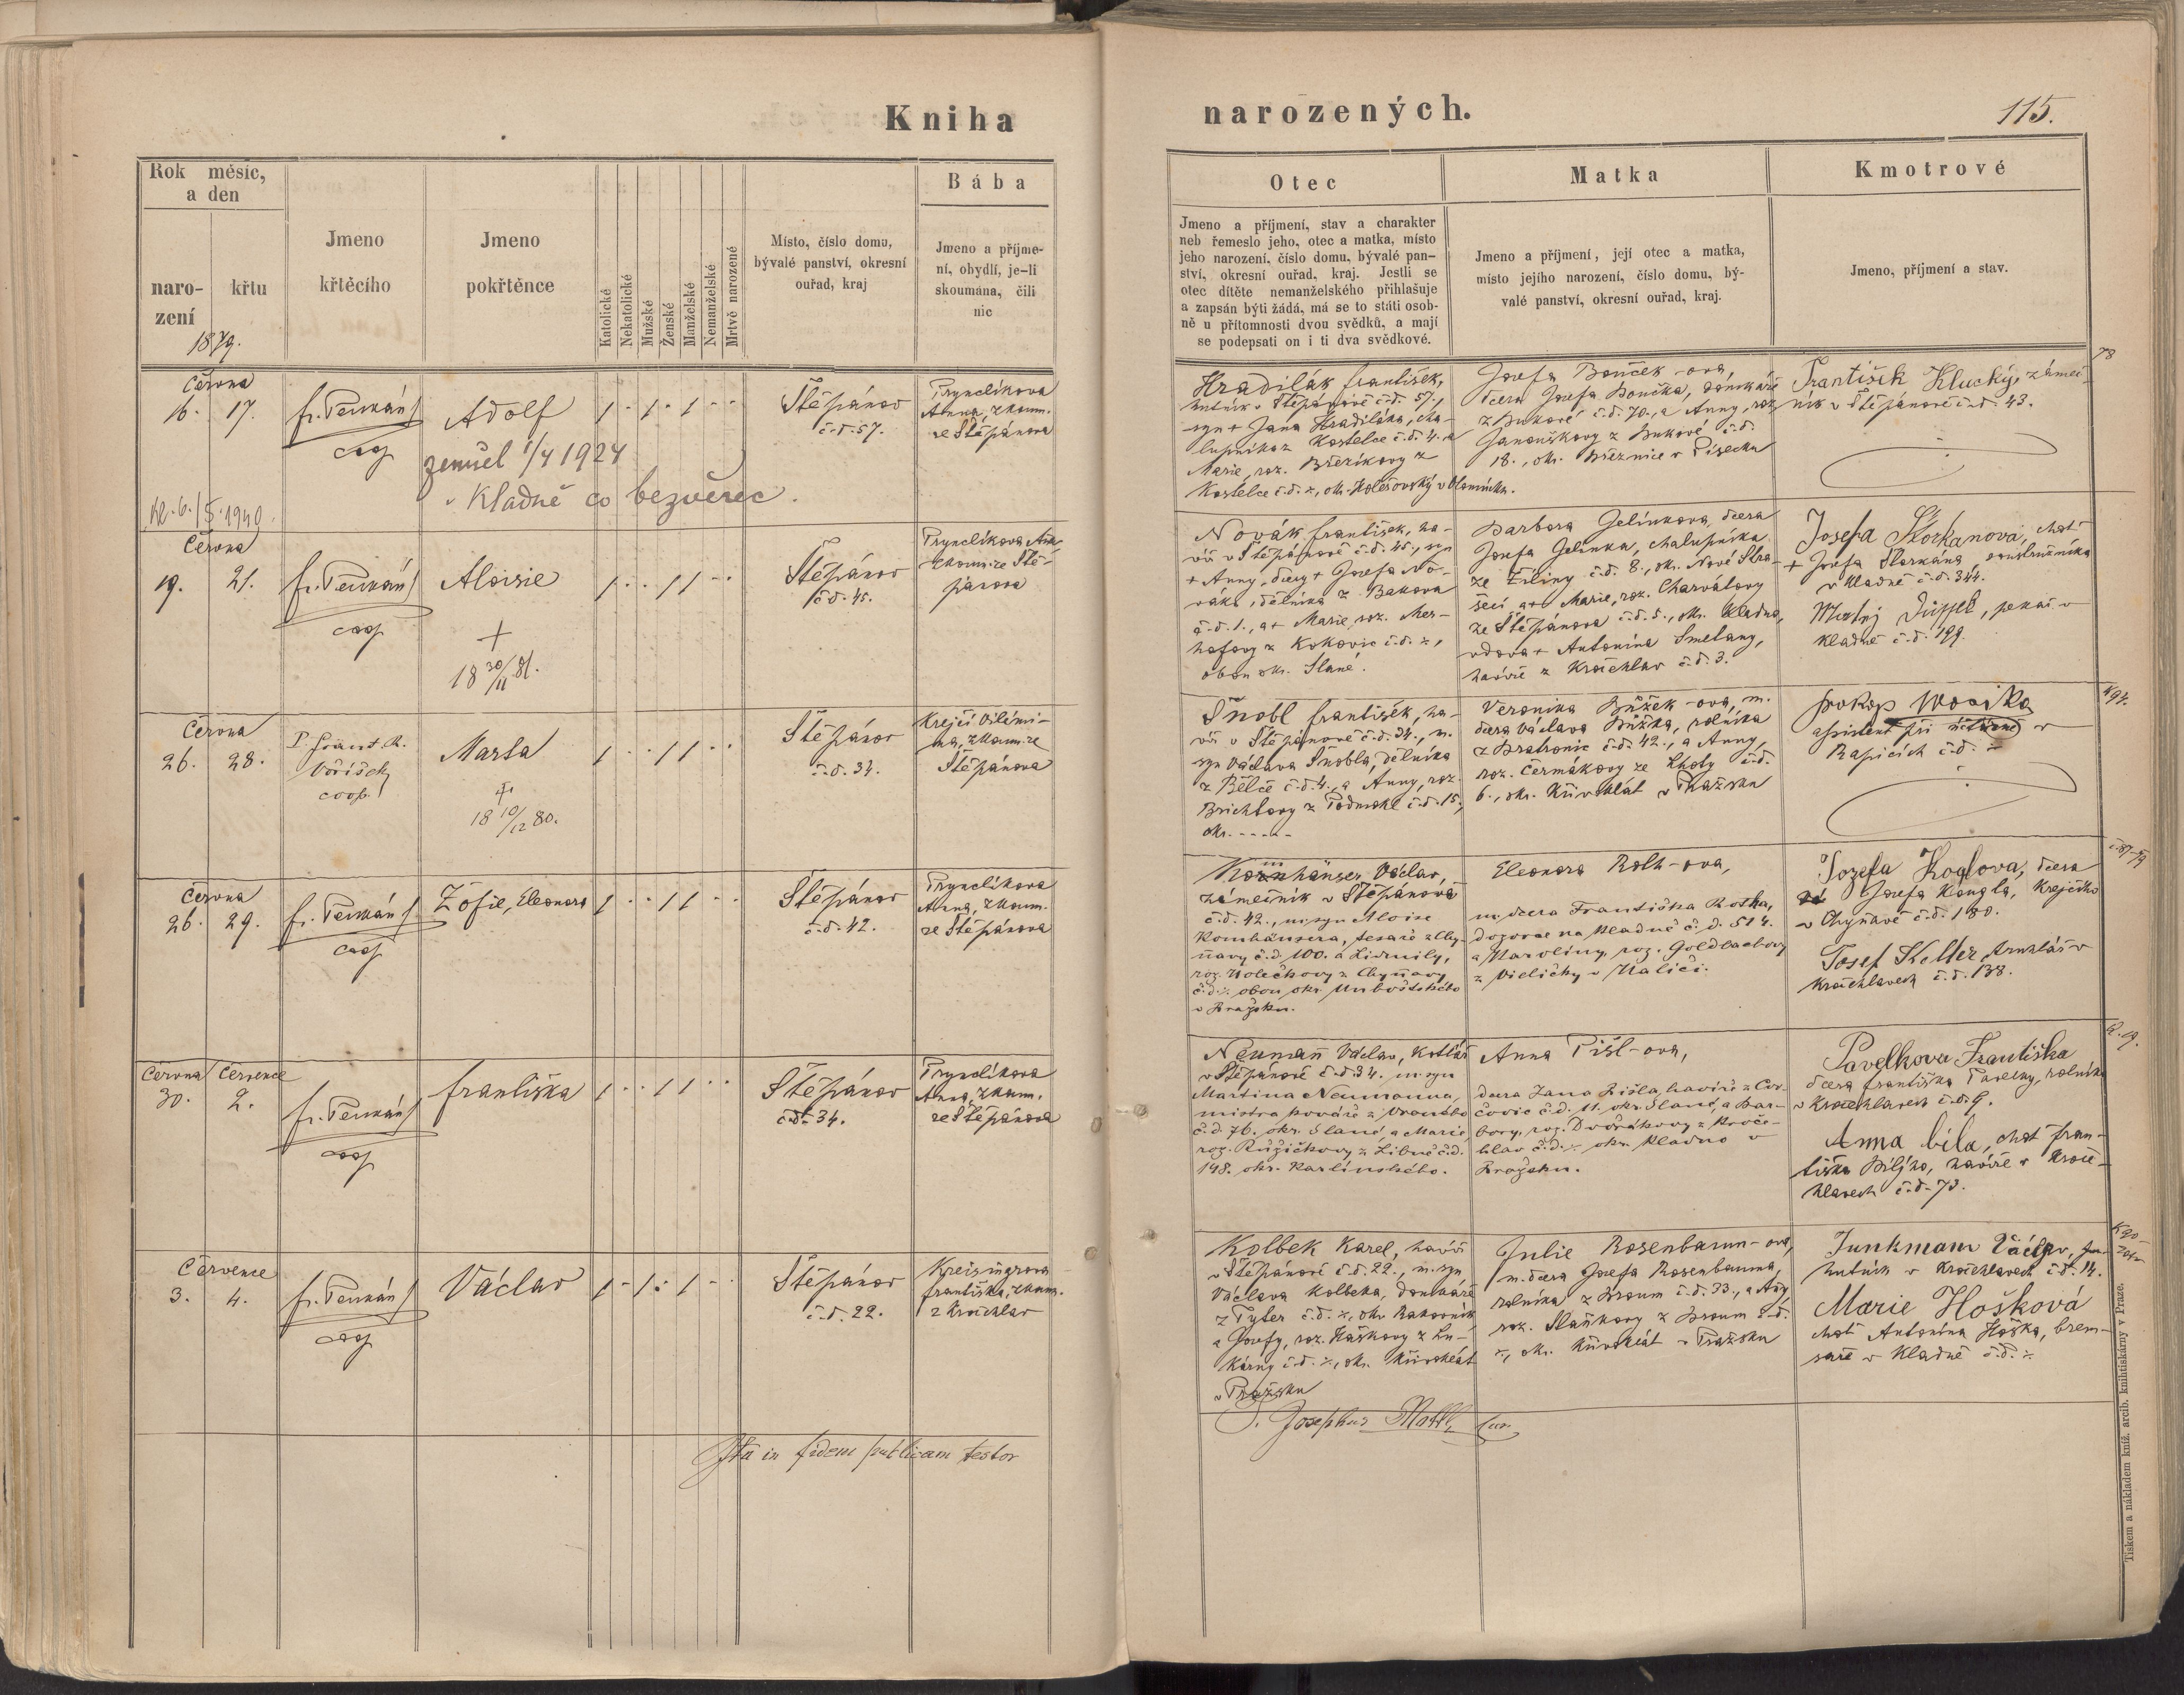 Kniha
narozených.
115.
Rok měsíc,
a den
naro-
zení
křtu
1879.
Jmeno
křtěcího
Jmeno
pokřtěnce
Katolické
Nekatolické
Mužské
Ženské
Manželské
Nemanželské
Mrtvě narozené
Místo, číslo domu,
bývalé panství, okresní
ouřad, kraj
Bába
Jmeno a příjme-
ní, obydlí, je-li
skoumána, čili
nic
Otec
Jmeno a příjmení, stav a charakter
neb řemeslo jeho, otec a matka, místo
jeho narození, číslo domu, bývalé pan-
ství, okresní ouřad, kraj. Jestli se
otec dítěte nemanželského přihlašuje
a zapsán býti žádá, má se to státi osob-
ně u přítomnosti dvou svědků, a mají
se podepsati on i ti dva svědkové.
Matka
Jmeno a příjmení, její otec a matka,
místo jejího narození, číslo domu, bý-
valé panství, okresní ouřad, kraj.
Kmotrové
Jmeno, příjmení a stav.
Června
16. 17.
coop
Adolf
zemřel 1/4 1924
v Kladně co bezvěrec.
Štěpánov
č.d. 57.
Anna, zkoum.
ze Štěpánova
Hradilák František,
hutník v Štěpánově č.d. 57.,
syn + Jana Hradiláka, cha-
lupníka z Kostelce č.d. 4. a
Marie, roz. Březíkovy z
Kostelce č.d. ÷, okr. Holešovský v Olomúcku.
Josefa Bouček-ova,
dcera Josefa Boučka, domkáře
z Bukové č.d. 70., a Anny, roz.
Janouškovy z Bukové č.d.
18., okr. Březnice v Písecku
František Klucký, zámeč-
ník v Štěpánově č.d. 43.
78
Června
19. 21.
coop
Aloisie
+
18 30/11 81.
Štěpánov
č.d. 45.
Zkoum. ze Ště-
pánova
Novák František, ha-
víř v Štěpánově č.d. 45., syn
+ Anny, dcery + Josefa No-
váka, dělníka z Bakova
č.d. 1., a + Marie, roz. Mer-
hofovy z Kokovic č.d. ÷,
obou okr. Slané.
Barbora Jelínkova, dcera
Josefa Jelínka, chalupníka
ze Žiliny č.d. 8., okr. Nové Stra-
šecí a + Marie, roz. Charvátovy
ze Štěpánova č.d. 5., okr. Kladno,
vdova + Antonína Smetany,
havíře z Kročehlav č.d. 3.
Josefa Štorkanová, choť
+ Josefa Štorkána, soustružníka
v Kladně č.d. 344.
pekař v
Kladně č.d. 199.
Června
26. 28.
P. Frant. R.
Voříšek
coop.
Marta
+
18 10/12 80.
Štěpánov
č.d. 34.
Krejčí Vilémi-
na, zkoum. ze
Štěpánova
Šnobl František, ha-
víř v Štěpánově č.d. 34., m.
syn Václava Šnobla, dělníka
z Bělče č.d. 4., a Anny, roz.
Brichtovy z Podmokl č.d. 15.,
okr. - - - - -
Veronika Bůžek-ova, m.
dcera Václava Bůžka, rolníka
z Bratronic č.d. 42., a Anny,
roz. Čermákovy ze Lhoty č.d.
6., okr. Křivoklát v Pražsku
Prokop
assistent při v
Rapicích č.d. ÷
Června
26. 29.
coop
Žofie, Eleonora
Štěpánov
č.d. 42.
Anna, zkoum.
ze Štěpánova
Kornhäuser Václav,
zámečník v Štěpánově
č.d. 42., m. syn Aloise
Kornhäusera, tesaře z Chy-
ňavy č.d. 100. a Lidmily,
roz. Holečkovy z Chyňavy
č.d. ÷ obou okr. Unhoštského
v Pražsku.
Eleonora Roth-ova,
m. dcera Františka Rotha,
dozorce na Kladně č.d. 514.
a Karoliny, roz. Goldbachovy
z Vieličky v Haliči.
Josefa Koglova, dcera
Josefa Kongla, krejčího
v Chyňavě č.d. 180.
Josef Keller, truhlář v
Kročehlavech č.d. 138.
Června Července
30. 2.
coop
Františka
Štěpánov
č.d. 34.
Anna, zkoum.
ze Štěpánova
Neumann Václav, kotlář
v Štěpánově č.d. 34. m. syn
Martina Neumanna,
mistra kováře z Vraného
č.d. 76. okr. Slané, a Marie,
roz. Růžičkovy z Libně č.d.
148. okr. Karlínského.
Anna Pišl-ova,
dcera Jana Pišla, havíře z Cvr-
čovic č.d. 11. okr. Slané, a Bar-
bory, roz. Dvořákovy z Kroče-
hlav č.d. ÷ okr. Kladno v
Pražsku.
Pavelkova Františka
dcera Františka Pavelky, rolníka
v Kročehlavech č.d. 9.
Anna bílá, choť Fran-
tiška Bílýho, havíře v Kroče-
hlavech č.d. 73.
Července
3. 4.
coop
Václav
Štěpánov
č.d. 22.
Kreisingrova
Františka, zkoum.
z Kročehlav
Kolbek Karel, havíř
v Štěpánově č.d. 22., m. syn
Václava Kolbeka, domkáře
z Týřer č.d. ÷, okr. Rakovník
a Josefy, roz. Háškovy z Hu-
kárny č.d. ÷, okr. Křivoklát
v Pražsku
Julie Rosenbaum-ova,
m. dcera Josefa Rosenbauma,
rolníka z Broum č.d. 33., a Anny
roz. Slaňkovy z Broum č.d.
÷, okr. Křivoklát v Pražsku
Junkmann Václav,
hutník v Kročehlavech č.d. 14.
Marie Hošková
choť Antonína Hoška, brem-
saře v Kladně č.d. ÷
Ita in fidem publicam testor
P. Josephus
Tiskem a nákladem kníž. arcib. knihtiskárny v Praze.